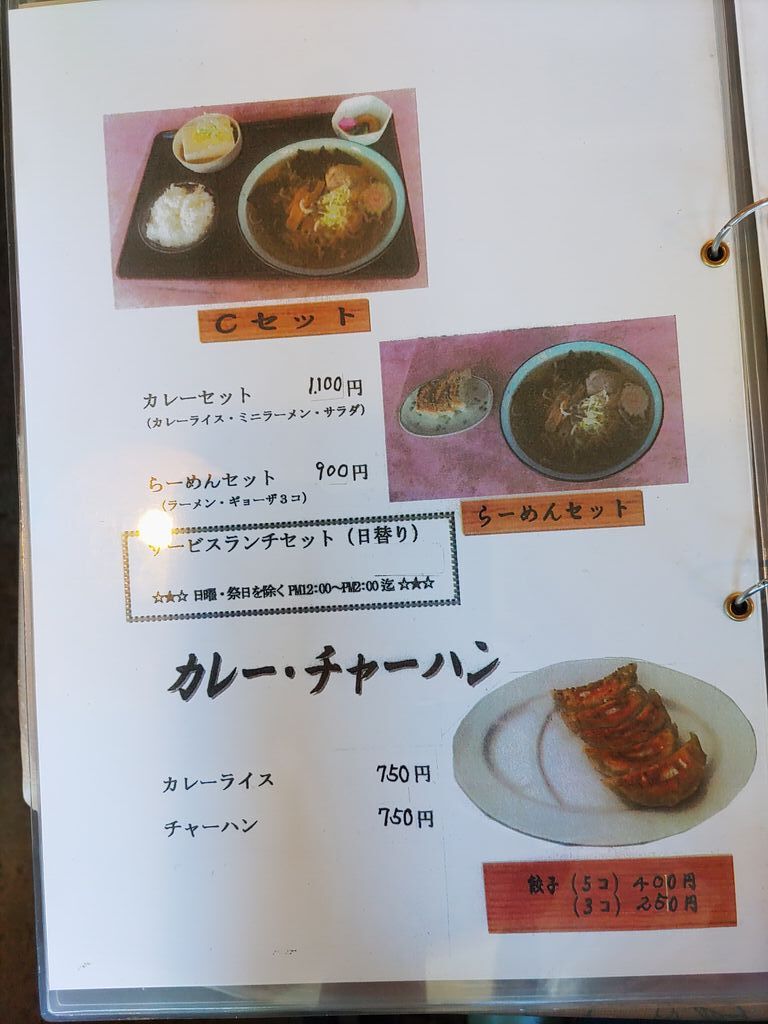 Cセット
カレーセット 1,100円
(カレーライス・ミニラーメン・サラダ)
らーめんセット 900円
(ラーメン・ギョーザ3コ)
らーめんセット
サービスランチセット(日替り)
☆★☆ 日曜・祭日を除く PM12:00〜PM2:00迄 ☆★☆
カレー・チャーハン
カレーライス 750円
チャーハン 750円
餃子(5コ) 400円
(3コ) 250円